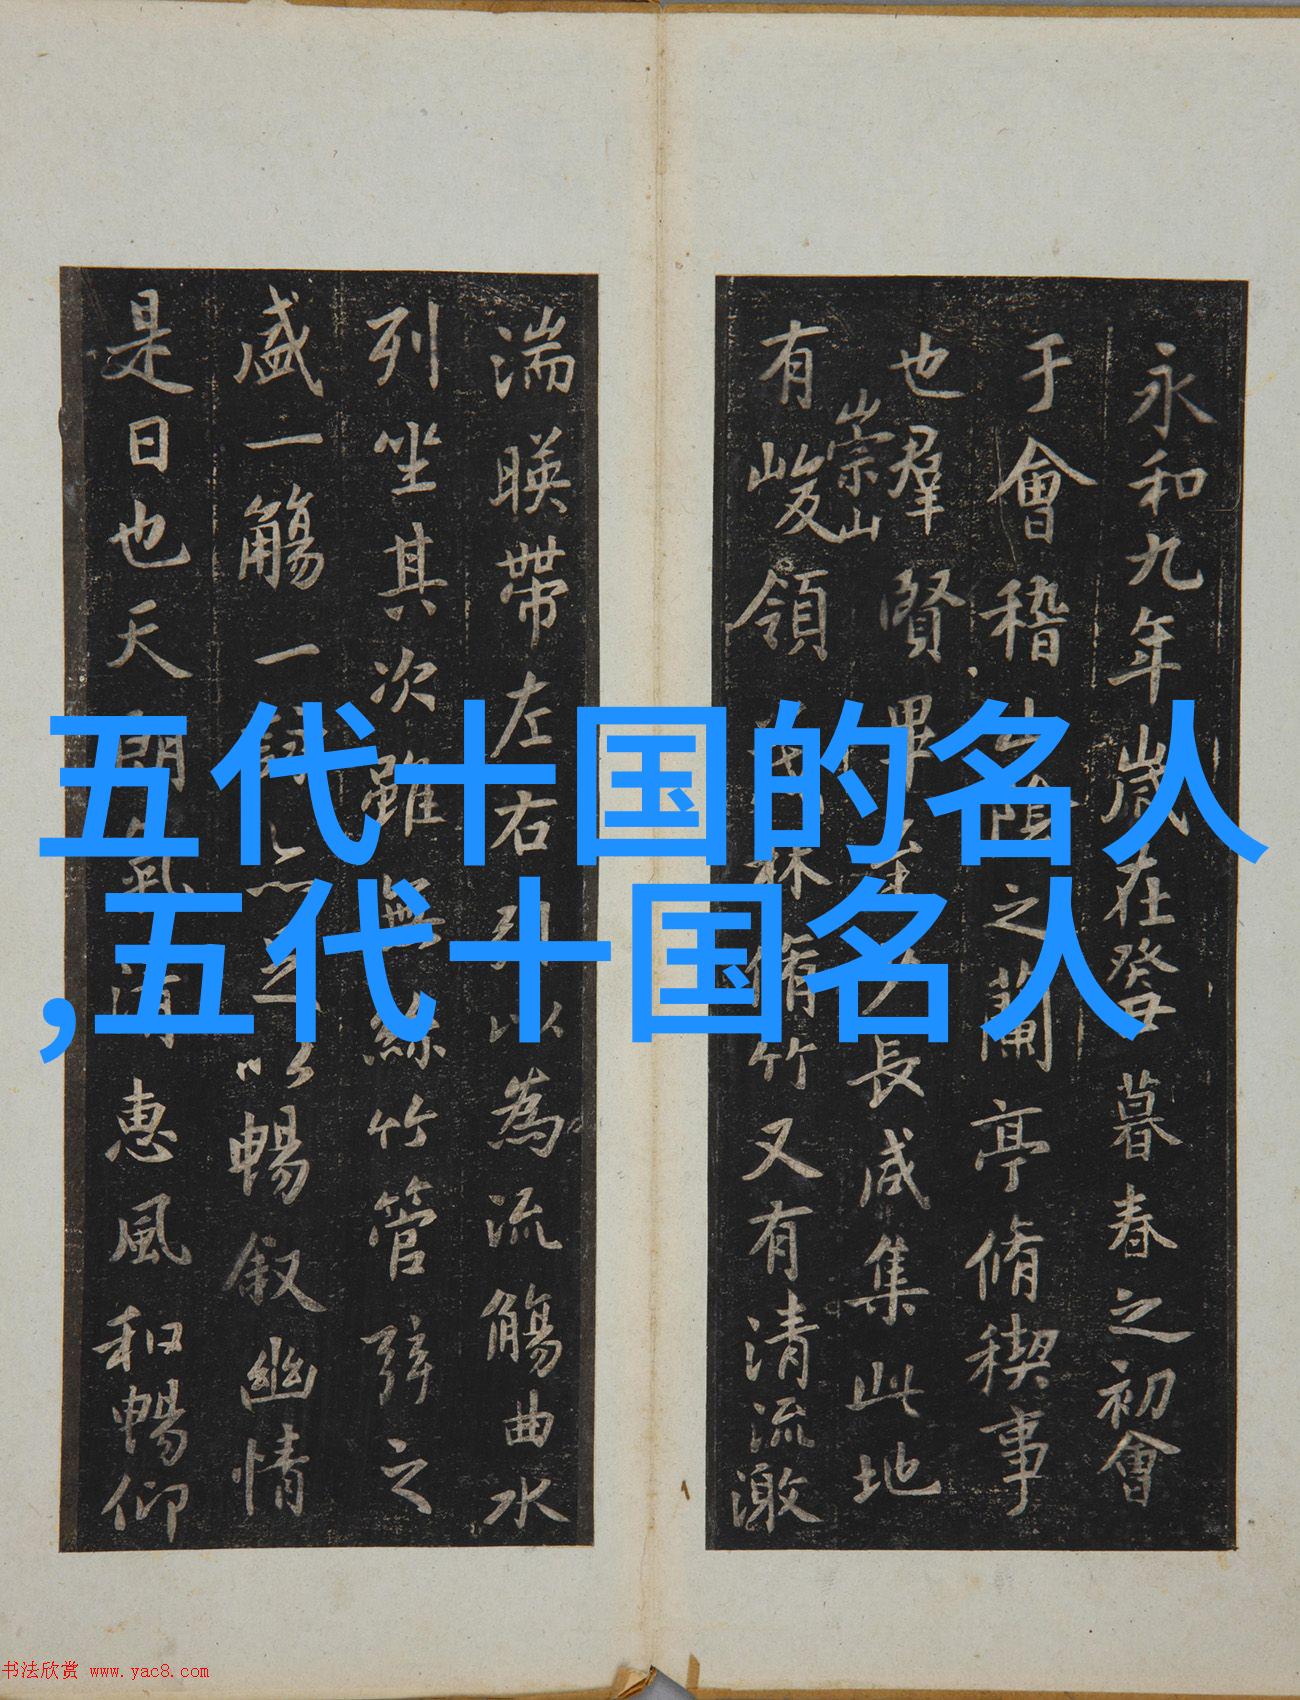 永和九年歲在癸丑暮春之初會
于會稽山陰之蘭亭脩稧事
也羣賢畢至少長咸集此地
崇山
有峻領茂林脩竹又有清流激
湍暎帶左右引以為流觴曲水
列坐其次雖無絲竹管弦之
盛一觴一詠亦足以暢叙幽情
是日也天朗氣清惠風和暢仰
五代十国的名人
,五代十国名人
书法欣赏 www.yac8.com